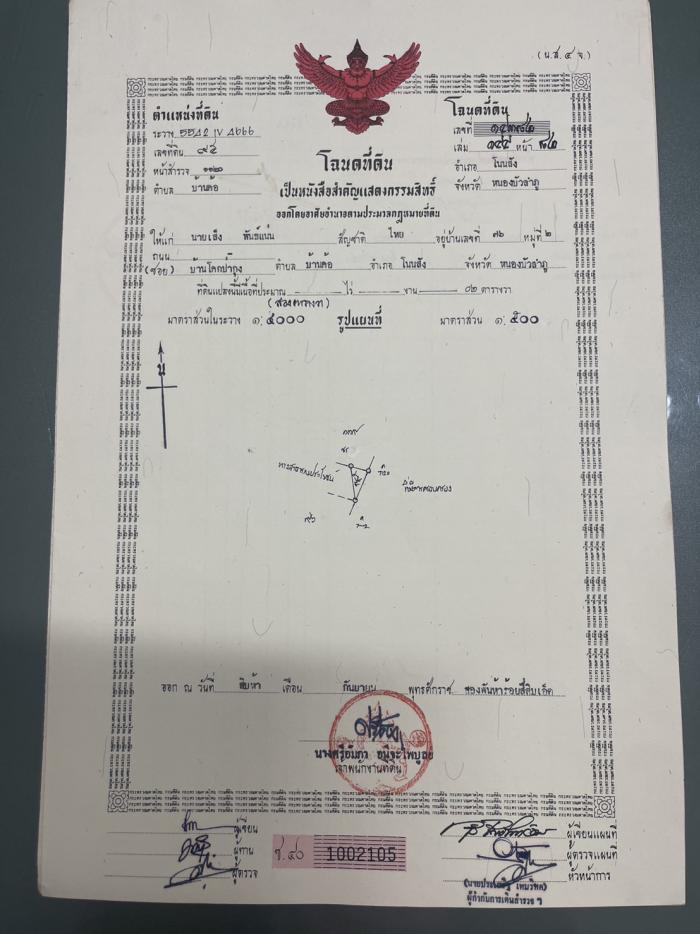 (น.ส. ๔ จ.)
ตำแหน่งที่ดิน
โฉนดที่ดิน
ระวาง 5542 IV 4666
เลขที่
เลขที่ดิน ๙๕
เล่ม ๑๔๔ หน้า
หน้าสำรวจ ๑๑๒๐
โฉนดที่ดิน
อำเภอ โนนสัง
ตำบล บ้านค้อ
เป็นหนังสือสำคัญแสดงกรรมสิทธิ์
จังหวัด หนองบัวลำภู
ออกโดยอาศัยอำนาจตามประมวลกฎหมายที่ดิน
ให้แก่ นายเฮือง พันธ์แน่น สัญชาติ ไทย อยู่บ้านเลขที่ ๗๖ หมู่ที่ ๒
ถนน
(ซอย) บ้านโคกป่ากุง ตำบล บ้านค้อ อำเภอ โนนสัง จังหวัด หนองบัวลำภู
ที่ดินแปลงนี้มีเนื้อที่ประมาณ ไร่ งาน ๐๒ ตารางวา
(สองตารางวา)
มาตราส่วนในระวาง ๑: ๔๐๐๐ รูปแผนที่ มาตราส่วน ๑: ๕๐๐
น
ทางสาธารณประโยชน์
ที่มีการครอบครอง
ออก ณ วันที่ สิบห้า เดือน กันยายน พุทธศักราช สองพันห้าร้อยสี่สิบเอ็ด
เจ้าพนักงานที่ดิน
ผู้เขียน
ผู้เขียนแผนที่
ผู้ทาน
ผู้ตรวจแผนที่
ผู้ตรวจ
หัวหน้าการ
ช.๔๐ 1002105
ผู้กำกับการเดินสำรวจ ฯ